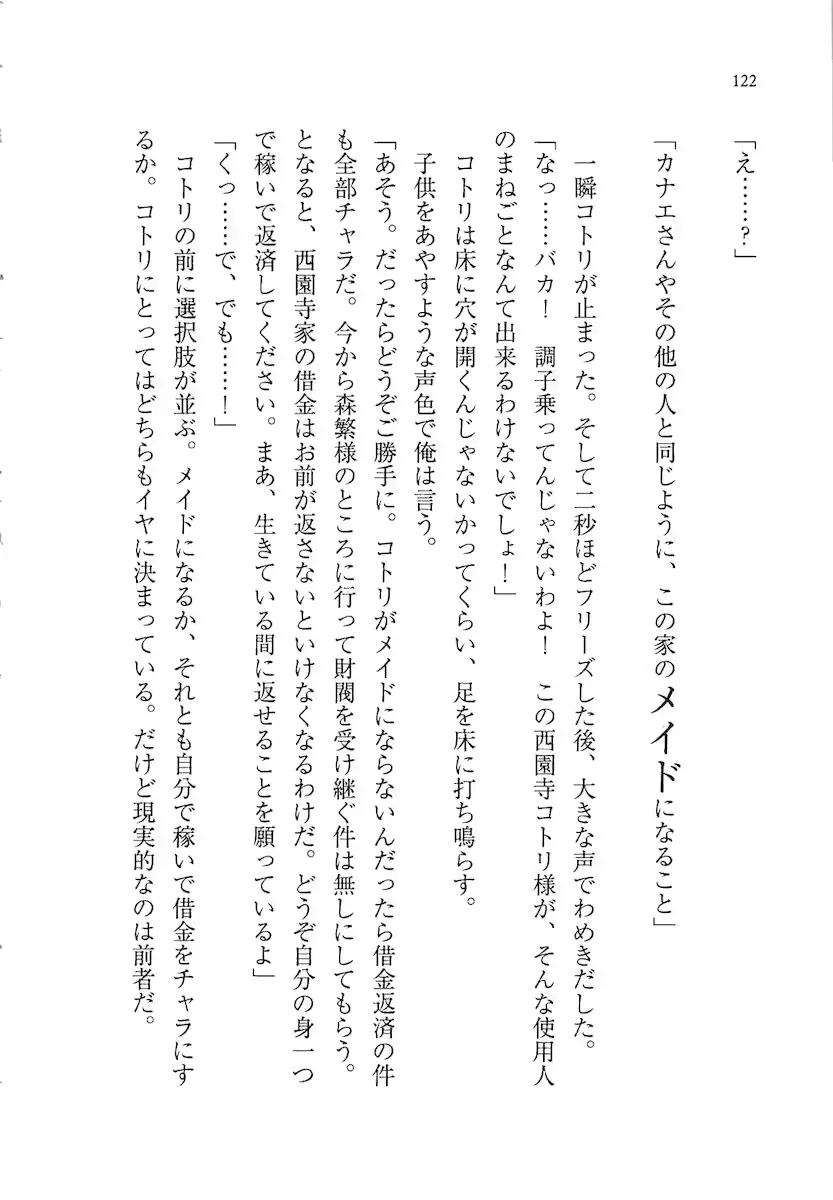 122
「え……？」
「カナエさんやその他の人と同じように、この家のメイドになること」
　一瞬コトリが止まった。そして二秒ほどフリーズした後、大きな声でわめきだした。
「なっ……バカ！　調子乗ってんじゃないわよ！　この西園寺コトリ様が、そんな使用人
のまねごとなんて出来るわけないでしょ！」
　コトリは床に穴が開くんじゃないかってくらい、足を床に打ち鳴らす。
　子供をあやすような声色で俺は言う。
「あそう。だったらどうぞご勝手に。コトリがメイドにならないんだったら借金返済の件
も全部チャラだ。今から森繁様のところに行って財閥を受け継ぐ件は無しにしてもらう。
となると、西園寺家の借金はお前が返さないといけなくなるわけだ。どうぞ自分の身一つ
で稼いで返済してください。まあ、生きている間に返せることを願っているよ」
「くっ……で、でも……！」
　コトリの前に選択肢が並ぶ。メイドになるか、それとも自分で稼いで借金をチャラにす
るか。コトリにとってはどちらもイヤに決まっている。だけど現実的なのは前者だ。